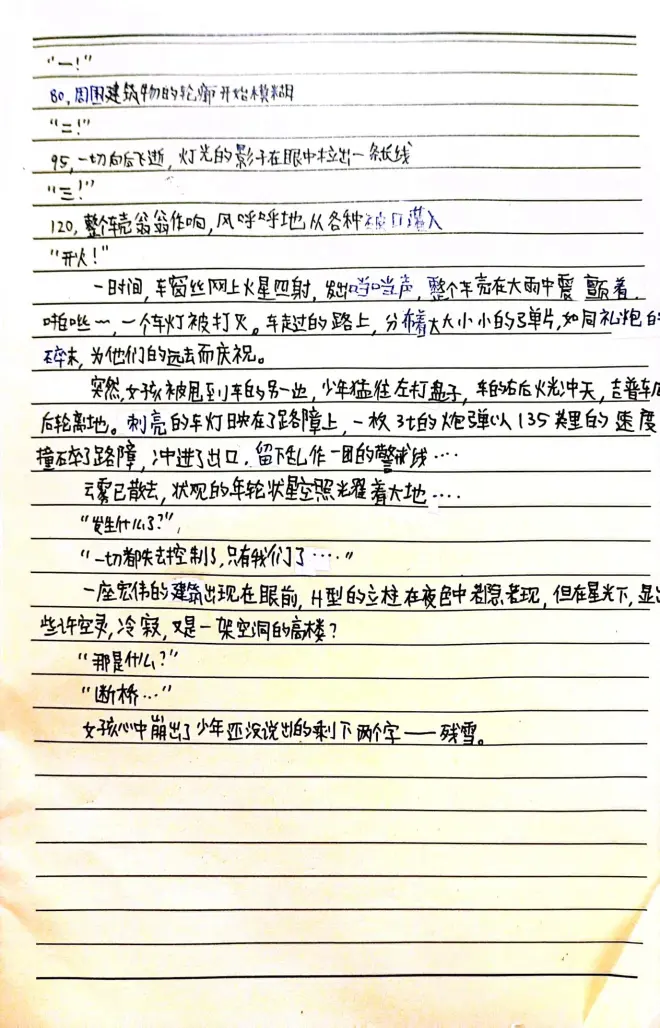 “一!”
80,周围建筑物的轮廓开始模糊
“二!”
95,一切向后飞逝,灯光的影子在眼中拉出一条长线
“三!”
120,整个车壳翁翁作响,风呼呼地从各种破口灌入
“开火!”
一时间,车窗丝网上火星四射,发出当当声,整个车壳在大雨中震颤着.
啪哗~,一个车灯被打灭。车走过的路上,分布着大大小小的弹片,如同礼炮的
碎末,为他们的远去而庆祝。
突然,女孩被甩到车的另一边,少年猛往左打盘子,车的右后火光冲天,吉普车后
后轮离地。刺亮的车灯映在了路障上,一枚3t的炮弹以135英里的速度
撞碎了路障,冲进了出口.留下乱作一团的警戒线····
云雾已散去,状观的年轮状星空照光耀着大地····
“发生什么了?”,
“一切都失去控制了,只有我们了····”
一座宏伟的建筑出现在眼前,H型的立柱在夜色中若隐若现,但在星光下,显出
些许空灵,冷寂,又是一架空洞的高楼?
“那是什么?”
“断桥···”
女孩心中崩出了少年还没说出的剩下两个字——残雪。